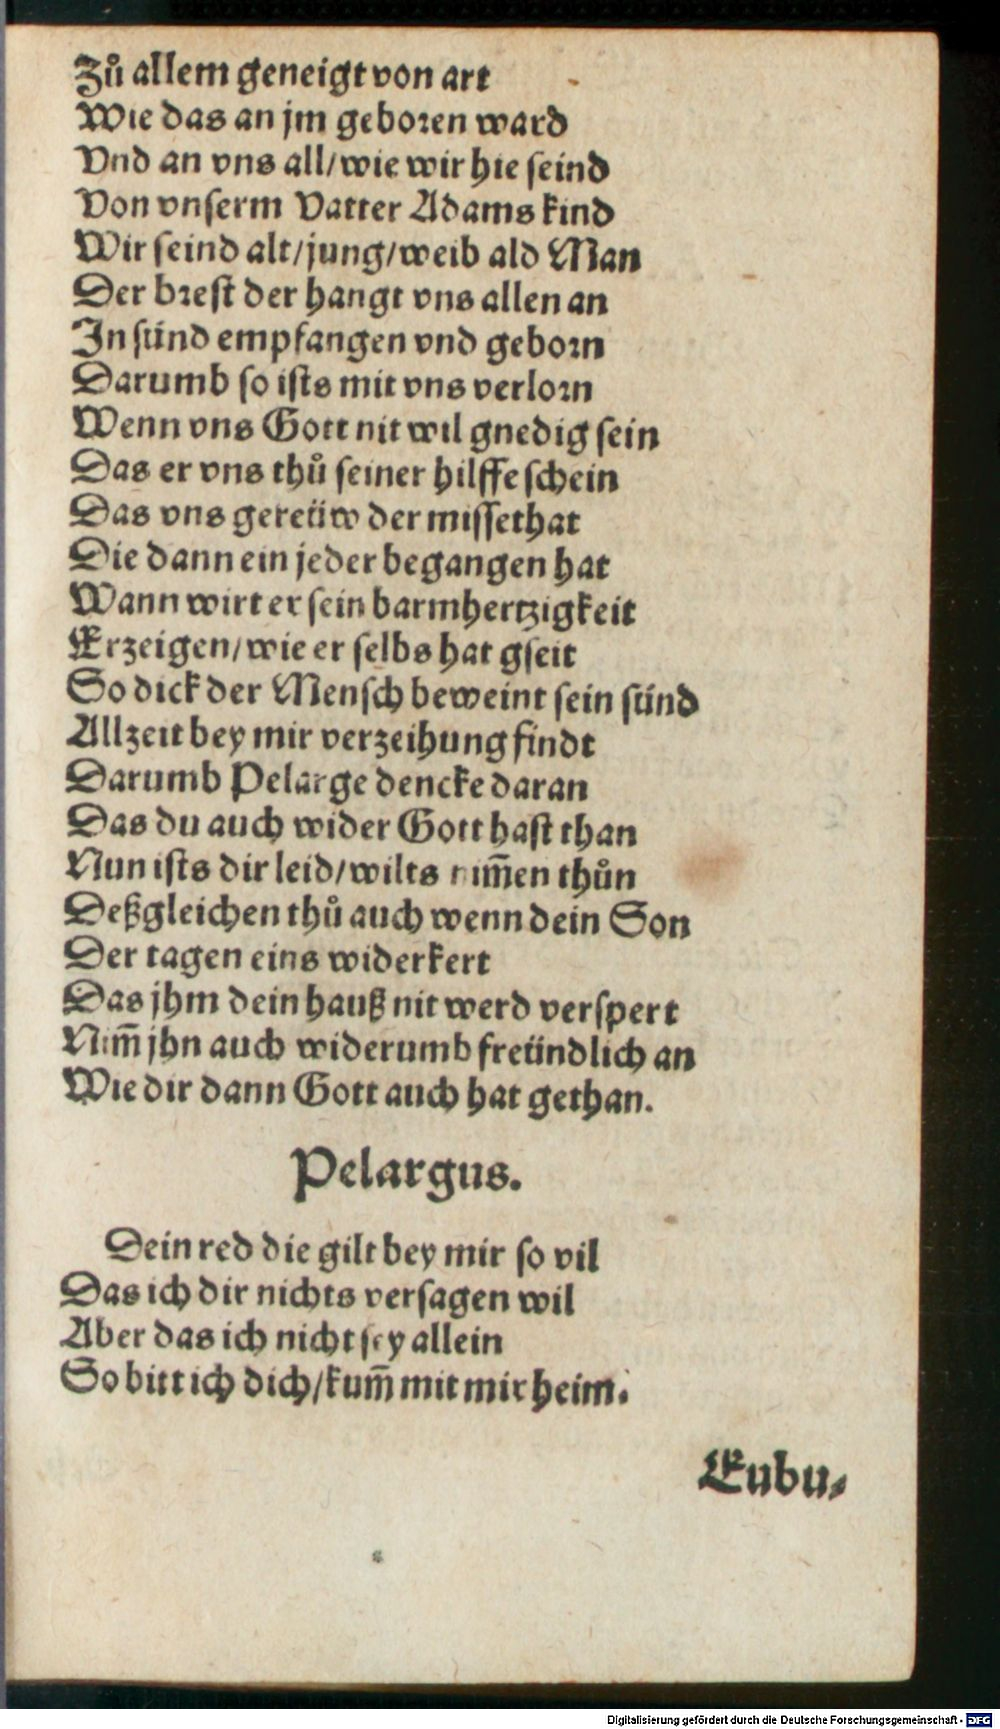 Zů allem geneigt von art
Wie das an jm geboren ward
Vnd an vns all/wie wir hie seind
Von vnserm Vatter Adams kind
Wir seind alt/jung/weib ald Man
Der brest der hangt vns allen an
In sünd empfangen vnd geborn
Darumb so ists mit vns verlorn
Wenn vns Gott nit wil gnedig sein
Das er vns thů seiner hilffe schein
Das vns gereüw der missethat
Die dann ein jeder begangen hat
Wann wirt er sein barmhertzigkeit
Erzeigen/wie er selbs hat gseit
So dick der Mensch beweint sein sünd
Allzeit bey mir verzeihung findt
Darumb Pelarge dencke daran
Das du auch wider Gott hast than
Nun ists dir leid/wilts nim̃en thůn
Deßgleichen thů auch wenn dein Son
Der tagen eins widerkert
Das jhm dein hauß nit werd verspert
Nim̃ jhn auch widerumb freündlich an
Wie dir dann Gott auch hat gethan.
Pelargus.
Dein red die gilt bey mir so vil
Das ich dir nichts versagen wil
Aber das ich nicht sey allein
So bitt ich dich/kum̃ mit mir heim.
Eubu⸗
Digitalisierung gefördert durch die Deutsche Forschungsgemeinschaft - DFG